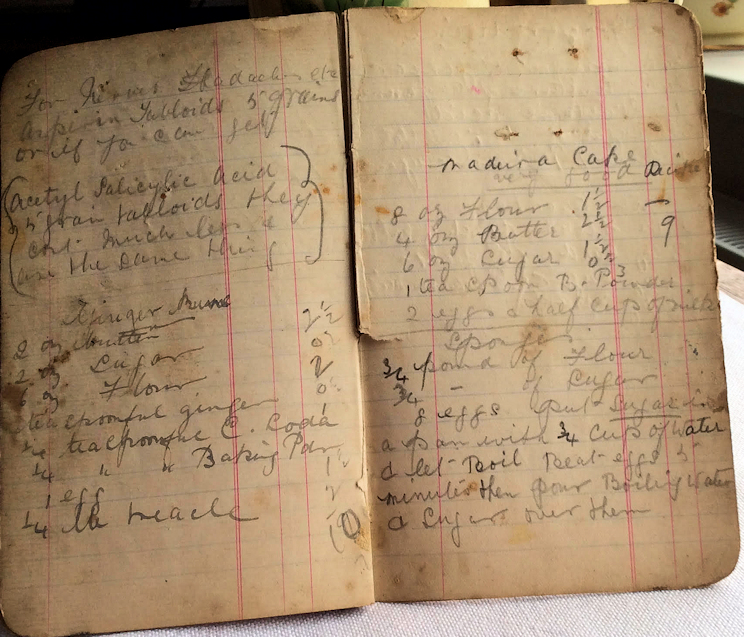 For Nerves Headaches etc
Aspirin Tabloids 5 grains
or if you can get
(Acetyl Salicylic Acid
5 grain tabloids they
cost much less &
are the same thing)
Ginger Nuts
2 oz butter 2½
2 oz Sugar 0
6 oz Flour 2
1 teaspoonful ginger 0
¼ teaspoonful C. Soda 1
¼ " " Baking Pdr
1 egg 1½
¼ lb treacle 2
10
Madeira Cake
very good
8 oz Flour 1½
4 oz Butter 2½ 9
6 oz Sugar 1½
1 tea spoon B. Powder
2 eggs & half Cup of milk
Sponge
¾ pound of Flour
¾ – of Sugar
8 eggs put Sugar in
a pan with ¾ Cup of Water
& let Boil Beat eggs 5
minutes then pour Boiling Water
& Sugar over them